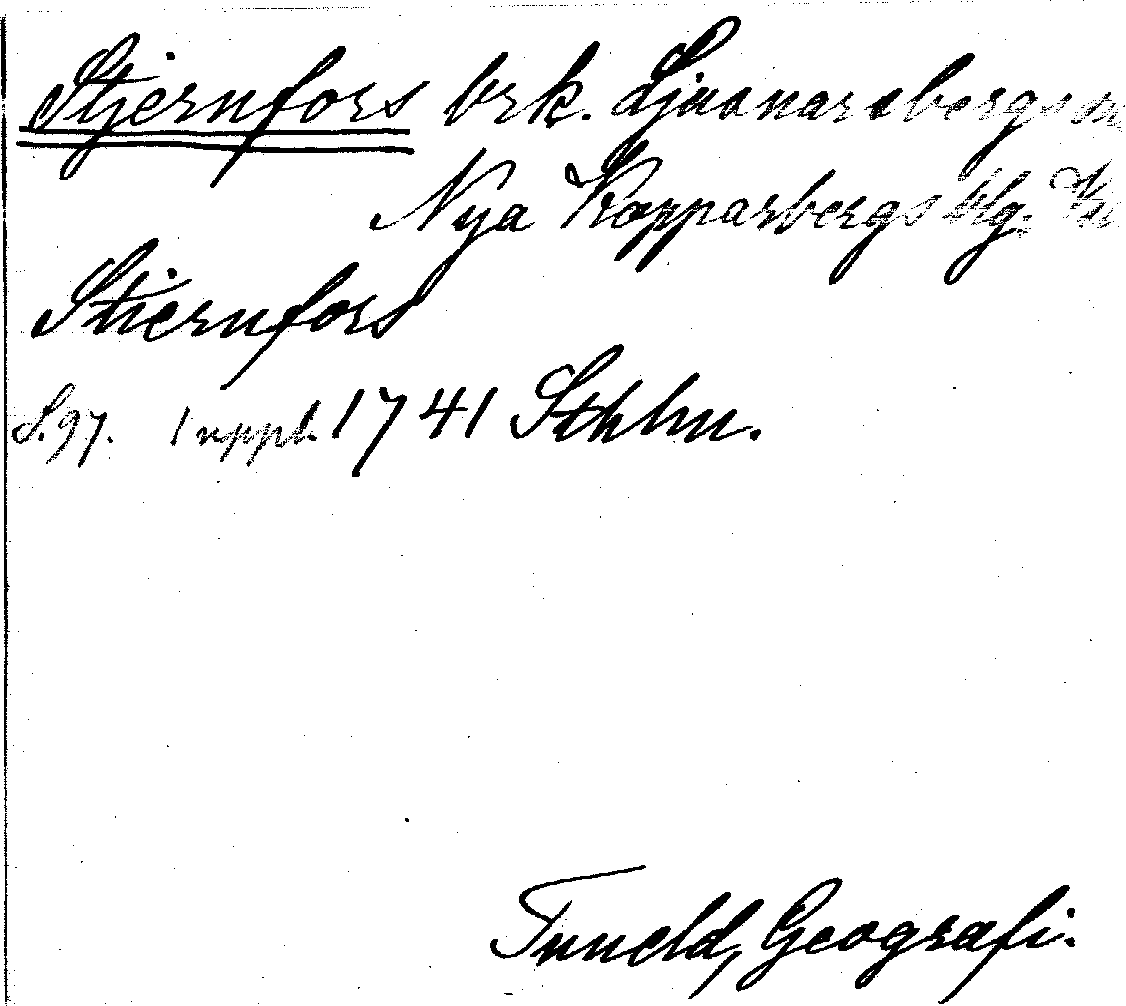 Stjernfors brk. Ljusnarsbergs sn
Nya Kopparbergs blg.
Stiernfors
S. 97. 1 uppl. 1741 Sthlm.
Tuneld, Geografi.